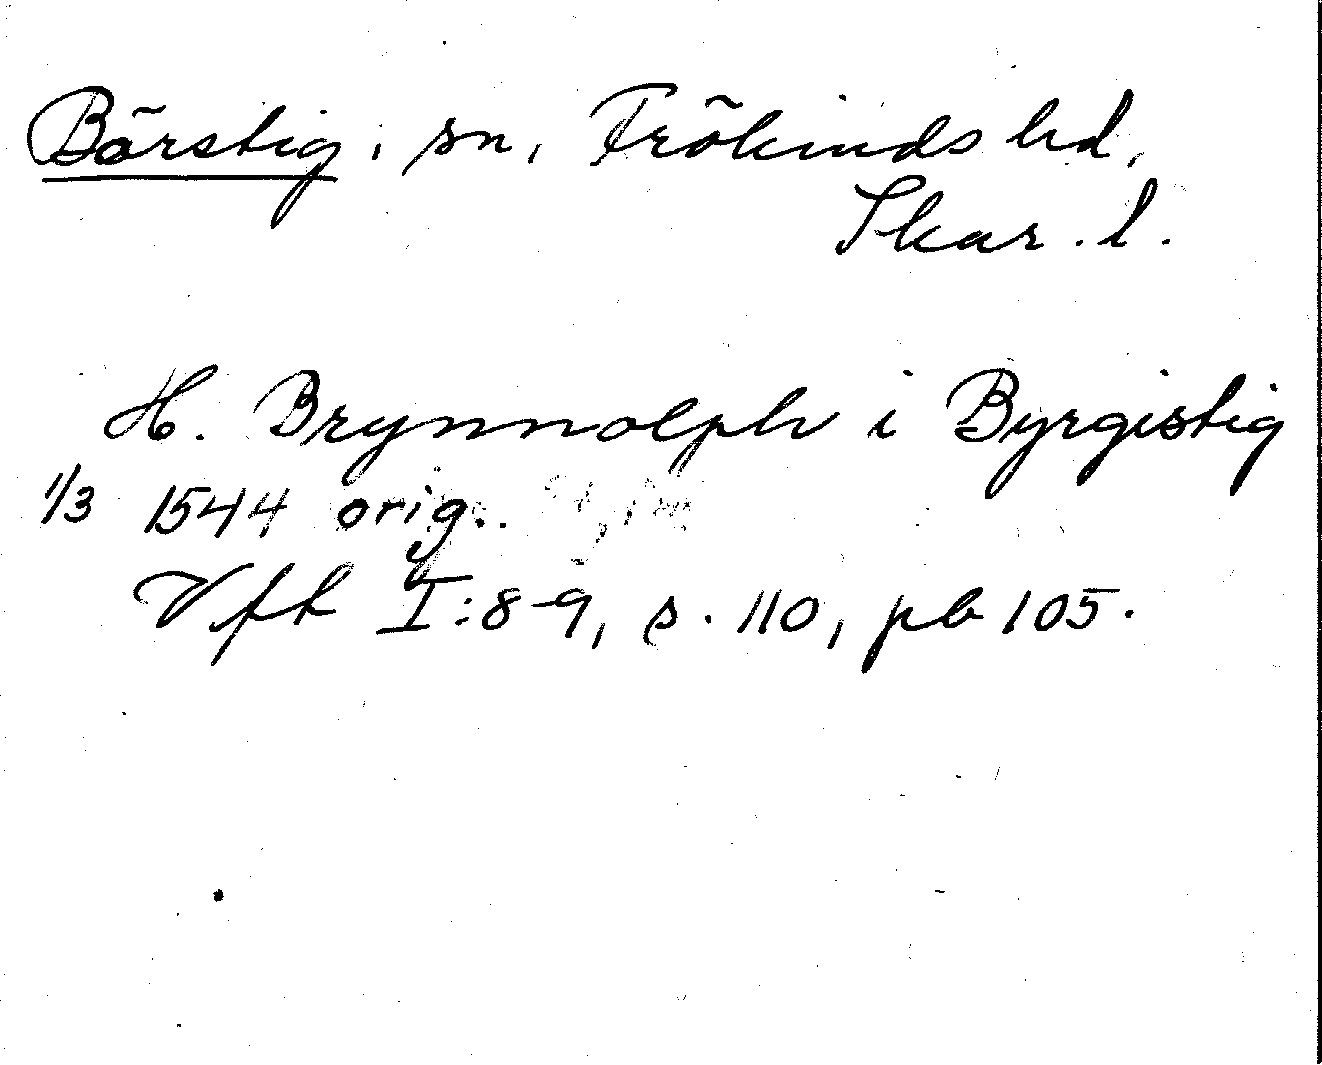 Börstig, sn, Frökinds hd,
Skar. l.
H. Brynnolph i Byrgistig
1/3 1544 orig..
Vft I:8-9, s. 110, pb 105.